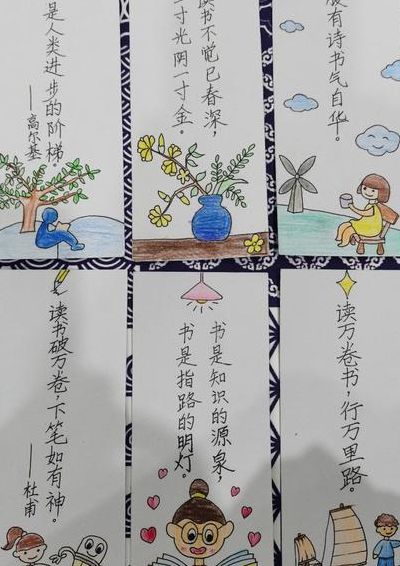 是人类进步的阶梯
——高尔基
读书不觉已春深，
一寸光阴一寸金。
腹有诗书气自华。
读书破万卷，下笔如有神。
——杜甫
书是知识的源泉，
书是指路的明灯。
读万卷书，行万里路。